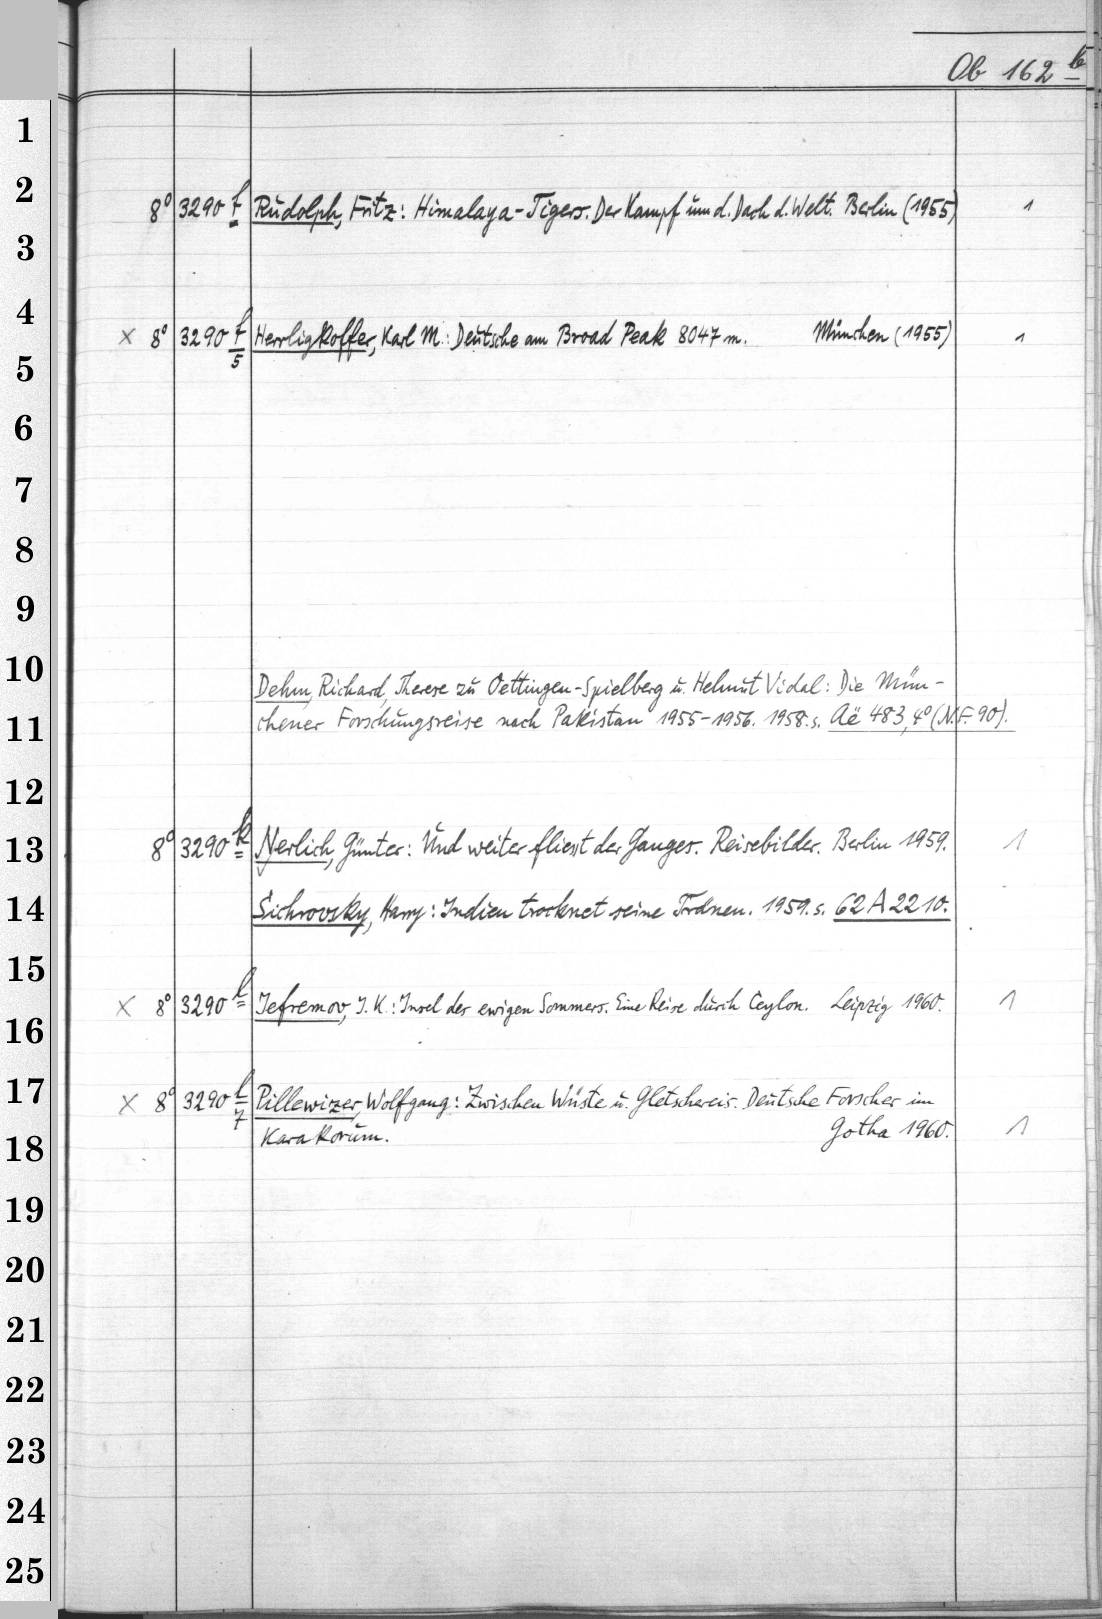 Ob 162 b
1
2
8° 3290 f Rudolph, Fritz: Himalaya-Tigers. Der Kampf um d. Dach d. Welt. Berlin (1955) 1
3
4
x 8° 3290 f/5 Herrligkoffer, Karl M.: Deutsche am Broad Peak 8047 m. München (1955) 1
5
6
7
8
9
10
Dehm, Richard, Therese zu Oettingen-Spielberg u. Helmut Vidal: Die Mün-
11
chener Forschungsreise nach Pakistan 1955-1956. 1958. s. Aë 483, 4° (N.F. 90).
12
13
8° 3290 k Nerlich, Günter: Und weiter fliesst der Ganges. Reisebilder. Berlin 1959. 1
14
Sichrovsky, Harry: Indien trocknet seine Tränen. 1959. s. 62 A 2210.
15
x 8° 3290 l Jefremov, J. K.: Insel des ewigen Sommers. Eine Reise durch Ceylon. Leipzig 1960. 1
16
17
x 8° 3290 l/7 Pillewizer, Wolfgang: Zwischen Wüste u. Gletschereis. Deutsche Forscher im
Karakorum. Gotha 1960. 1
18
19
20
21
22
23
24
25